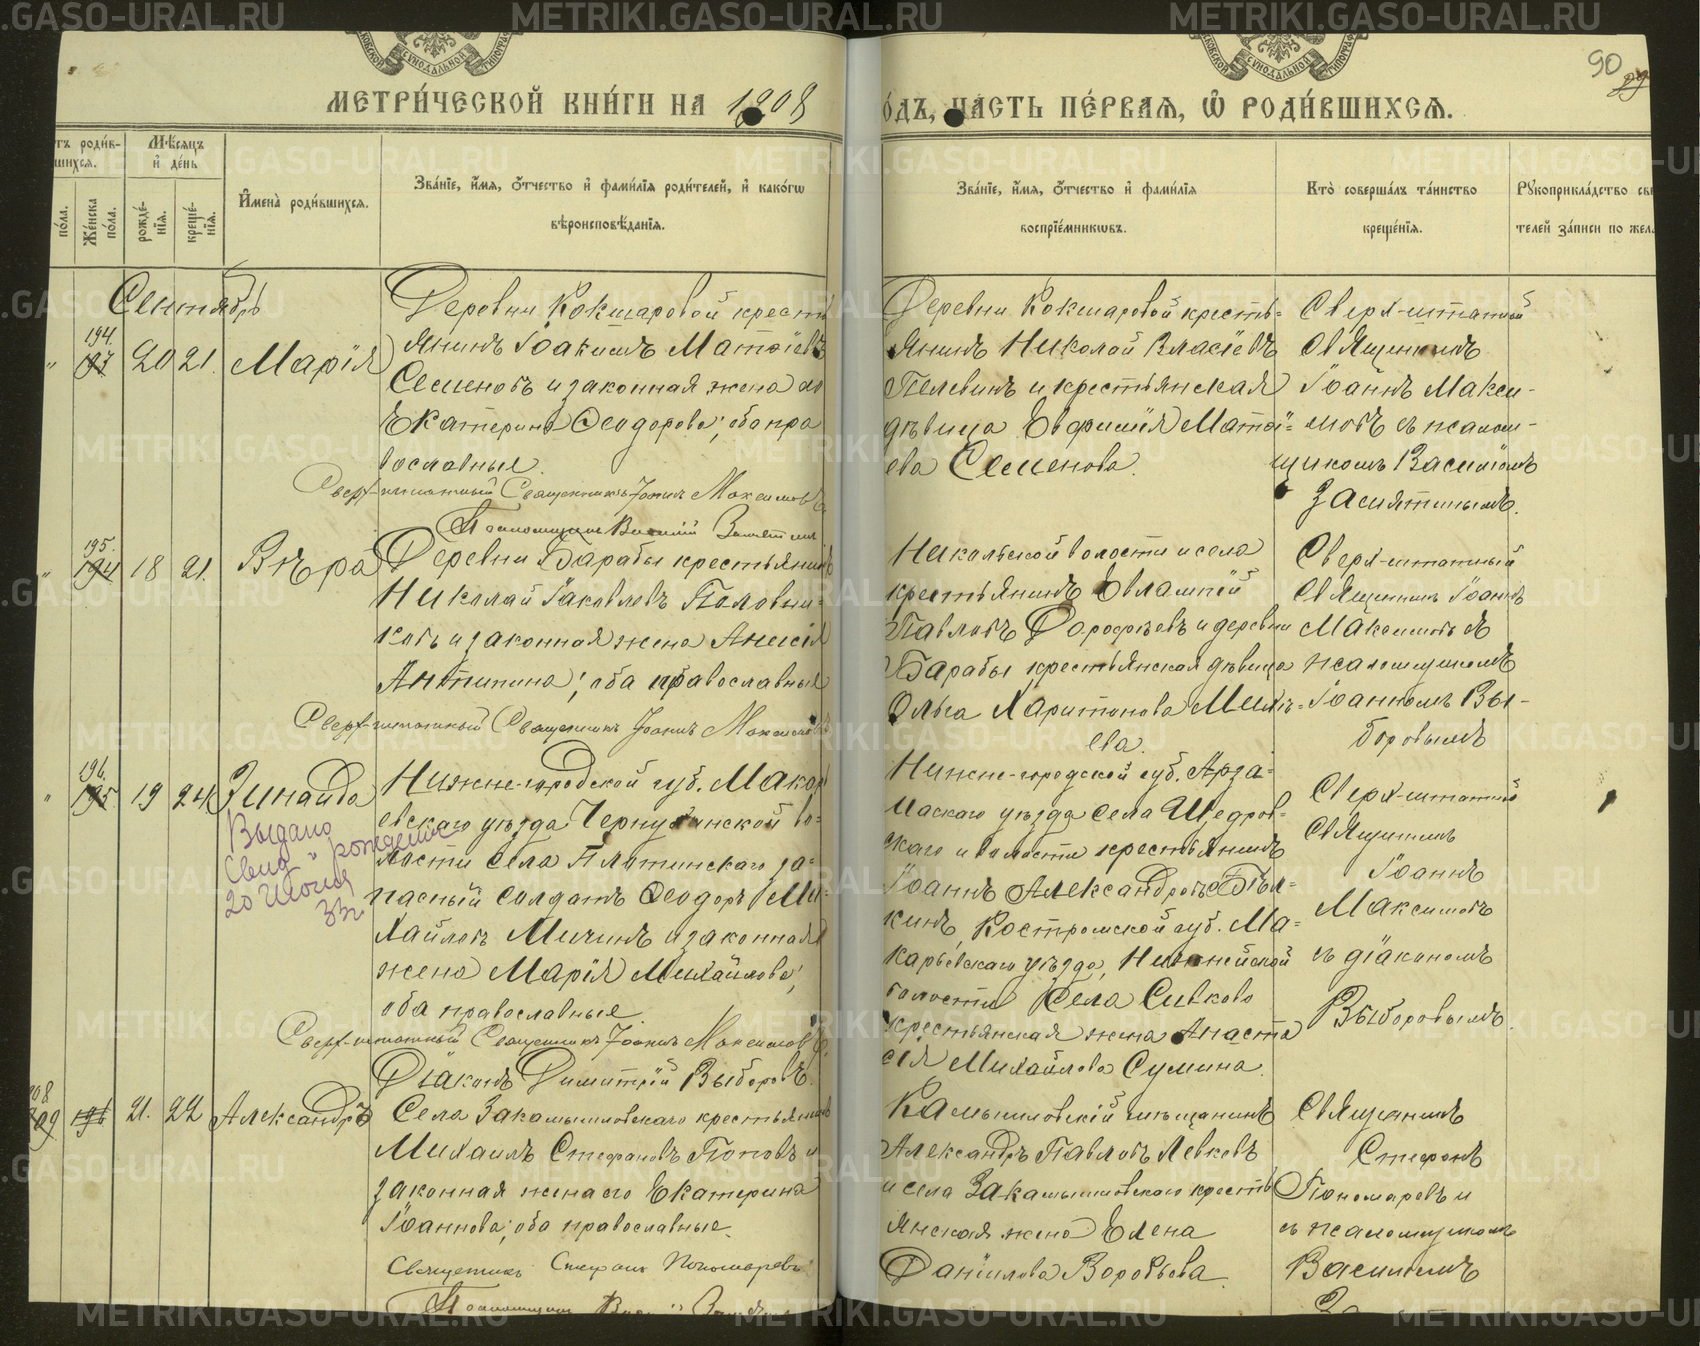 МЕТРИ́ЧЕСКОЙ КНИ́ГИ НА 1908
О́ДЪ, ЧА́СТЬ ПЕ́РВАЯ, Ѽ РОДИ́ВШИХСЯ.
90
тъ роди́в-
шихся.
по́ла.
Же́нска по́ла.
Мѣ́сяцъ и де́нь
рожде́-нія.
креще́-нія.
Имена̀ роди́вшихся.
Зва́ніе, и́мя, о́тчество и фами́лія роди́телей, и како́гѡ
вѣроисповѣ́данія.
Зва́ніе, и́мя, о́тчество и фами́лія
воспріе́мникѡвъ.
Кто̀ соверша́лъ та́инство
креще́нія.
Рꙋкоприкла́дство сви
телей за́писи по жел
Сентябрь
194.
" 20 21. Марія
Деревни Кокшаровой кресть
янинъ Іоакимъ Матѳіевъ
Семеновъ и законная жена его
Екатерина Ѳеодорова; оба пра
вославные.
Сверх-штатный Священникъ Іоаннъ Максимовъ
Псаломщикъ Василій
Деревни Кокшаровой кресть-
янинъ Николай Власіевъ
Пелевинъ и крестьянская
дѣвица Евфимія Матѳі=
ева Семенова.
Сверх-штатный
Священникъ
Іоаннъ Макси-
мовъ съ псалом-
щикомъ Василіемъ
Засыпкинымъ.
195.
194 18 21. Вѣра
Деревни Барабы крестьянинъ
Николай Іаковлевъ Половни-
ковъ и законная жена Анисія
Антипина; оба православные
Сверх-штатный Священникъ Іоаннъ Максимовъ
Никольской волости и села
крестьянинъ Евлампій
Павловъ Дорофѣевъ и деревни
Барабы крестьянская дѣвица
Ольга Харитонова Михѣ-
ева.
Сверх-штатный
Священникъ Іоаннъ
Максимовъ съ
псаломщикомъ
Іоанномъ Вы-
боровымъ
196.
195 19 24 Зинаида
Выдано
свид. о рожденіи
20 Июня
33г.
Нижне-городской губ. Макар
евскаго уѣзда Чернухинской во-
лости села Плотинскаго за-
пасный солдатъ Ѳеодоръ Ми-
хайловъ Мичинъ и законная
жена Марія Михайлова;
оба православные.
Сверх-штатный Священникъ Іоаннъ Максимовъ
Діаконъ Димитрій Выборовъ.
Нижне-городской губ. Арза-
маскаго уѣзда села Шедров-
скаго и волости крестьянинъ
Іоаннъ Александровъ Бѣл-
кинъ, Костромской губ. Ма-
карьевскаго уѣзда,
волости села Сивково
крестьянская жена Анаста
сія Михайлова Сумина.
Сверх-штатный
Священникъ
Іоаннъ
Максимовъ
съ діакономъ
Выборовымъ.
196 21. 22 Александръ
Села Закамышловскаго крестьянинъ
Михаилъ Стефановъ Поповъ и
законная жена его Екатерина
Іоаннова; оба православные.
Священникъ Стефанъ Пономаревъ
Псаломщикъ
Камышловскій мѣщанинъ
Александръ Павловъ Левковъ
и села Закамышловскаго кресть
янская жена Елена
Даніилова Воробьева.
Священникъ
Стефанъ
Пономаревъ и
съ псаломщикомъ
Василіемъ
METRIKI.GASO-URAL.RU